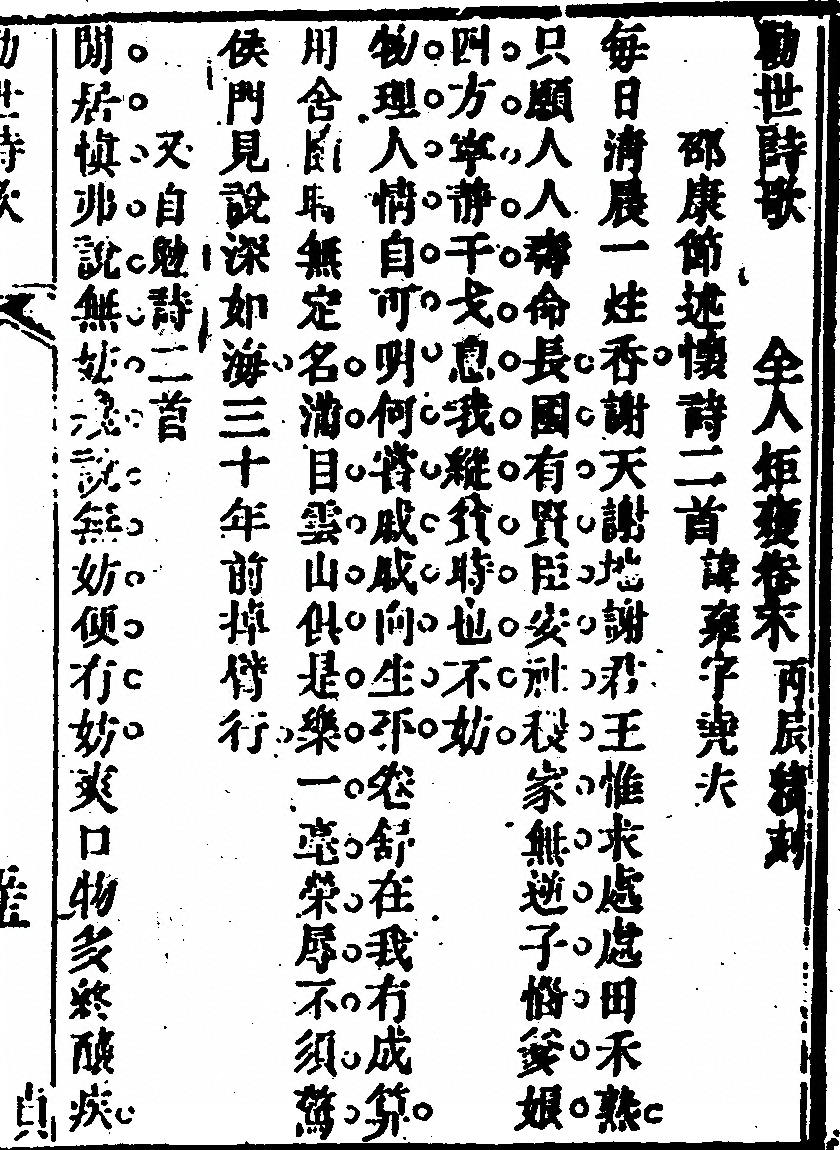 勸世詩歌　全人矩矱卷末　丙辰續刻
邵康節述懷詩二首　諱雍字堯夫
每日清晨一炷香謝天謝地謝君王惟求處處田禾熟
只願人人壽命長國有賢臣安社稷家無逆子惱爹娘
四方寧靜干戈息我縱貧時也不妨
物理人情自可明何嘗戚戚向生平卷舒在我有成算
用舍隨時無定名滿目雲山俱是樂一毫榮辱不須驚
侯門見說深如海三十年前掉臂行
又自勉詩二首
閒居愼弗說無妨纔說無妨便有妨爽口物多終釀疾
勸世詩歌
貞